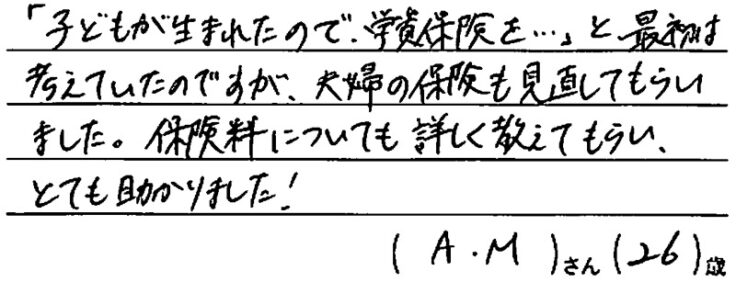 「子どもが生まれたので、学資保険を…」と最初は
考えていたのですが、夫婦の保険も見直してもらい
ました。保険料についても詳しく教えてもらい、
とても助かりました!
(A.M)さん(26)歳